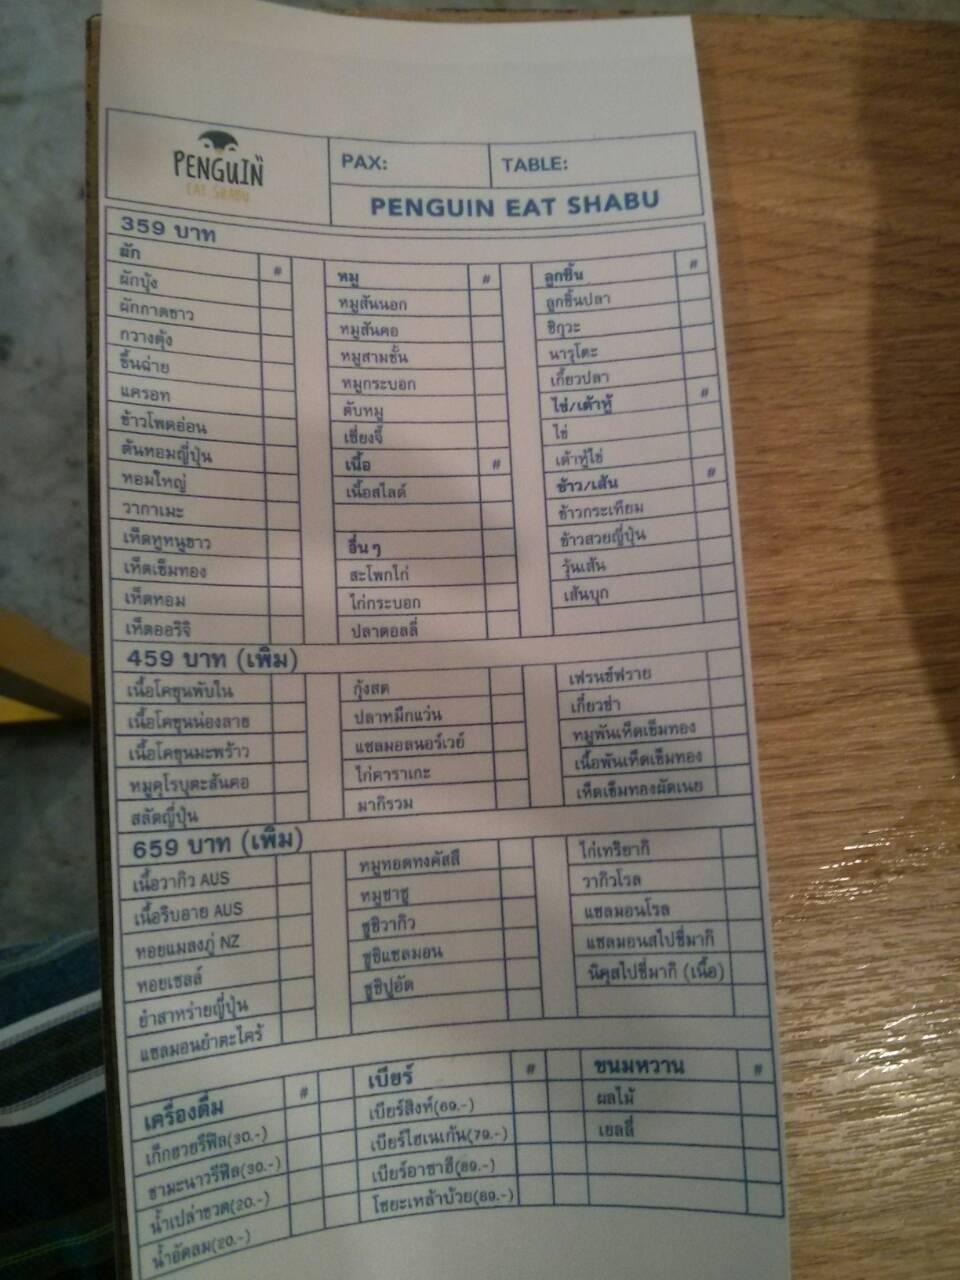 PENGUIN
EAT SHABU
PAX:
TABLE:
PENGUIN EAT SHABU
359 บาท
ผัก #
ผักบุ้ง
ผักกาดขาว
กวางตุ้ง
ขึ้นฉ่าย
แครอท
ข้าวโพดอ่อน
ต้นหอมญี่ปุ่น
หอมใหญ่
วากาเมะ
เห็ดหูหนูขาว
เห็ดเข็มทอง
เห็ดหอม
เห็ดออริจิ
หมู #
หมูสันนอก
หมูสันคอ
หมูสามชั้น
หมูกระบอก
ตับหมู
เซี่ยงจี้
เนื้อ #
เนื้อสไลด์
อื่น ๆ
สะโพกไก่
ไก่กระบอก
ปลาดอลลี่
ลูกชิ้น #
ลูกชิ้นปลา
ชิกูวะ
นารูโตะ
เกี๊ยวปลา
ไข่/เต้าหู้ #
ไข่
เต้าหู้ไข่
ข้าว/เส้น #
ข้าวกระเทียม
ข้าวสวยญี่ปุ่น
วุ้นเส้น
เส้นบุก
459 บาท (เพิ่ม)
เนื้อโคขุนพับใน
เนื้อโคขุนน่องลาย
เนื้อโคขุนมะพร้าว
หมูคุโรบุตะสันคอ
สลัดญี่ปุ่น
กุ้งสด
ปลาหมึกแว่น
แซลมอลนอร์เวย์
ไก่คาราเกะ
มากิรวม
เฟรนช์ฟราย
เกี๊ยวซ่า
หมูพันเห็ดเข็มทอง
เนื้อพันเห็ดเข็มทอง
เห็ดเข็มทองผัดเนย
659 บาท (เพิ่ม)
เนื้อวากิว AUS
เนื้อริบอาย AUS
หอยแมลงภู่ NZ
หอยเชลล์
ยำสาหร่ายญี่ปุ่น
แซลมอนยำตะไคร้
หมูทอดทงคัสสึ
หมูชาชู
ซูชิวากิว
ซูชิแซลมอน
ซูชิปูอัด
ไก่เทริยากิ
วากิวโรล
แซลมอนโรล
แซลมอนสไปซี่มากิ
นิคุสไปซี่มากิ (เนื้อ)
เครื่องดื่ม #
เก๊กฮวยรีฟิล(30.-)
ชามะนาวรีฟิล(30.-)
น้ำเปล่าขวด(20.-)
น้ำอัดลม(20.-)
เบียร์ #
เบียร์สิงห์(69.-)
เบียร์ไฮเนเก้น(79.-)
เบียร์อาซาฮี(89.-)
โซยะเหล้าบ๊วย(89.-)
ขนมหวาน #
ผลไม้
เยลลี่